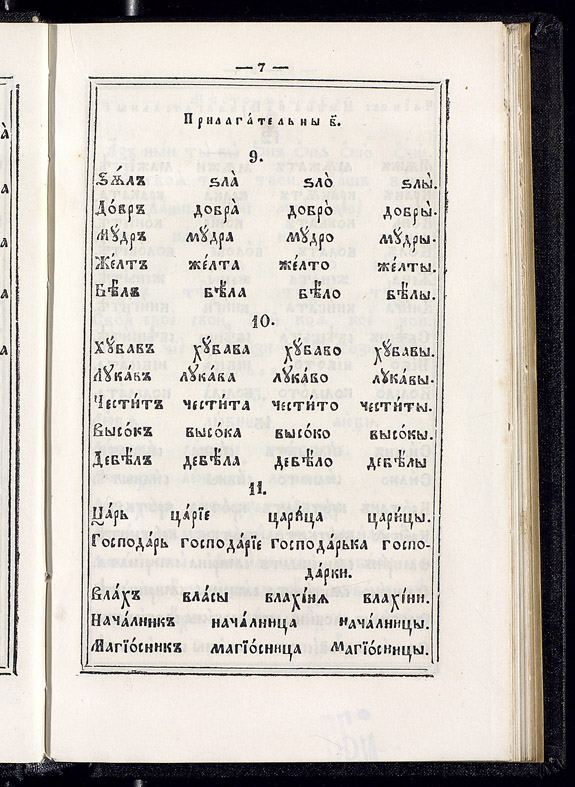 — 7 —
Прилага́телны в҃.
9.
Ѕѫ́лъ ѕла̀ ѕло̀ ѕлы̀.
До́бръ добра̀ добро̀ добры̀.
Мꙋ́дръ мꙋ́дра мꙋ́дро мꙋ́дры.
Же́лтъ же́лта же́лто же́лты.
Бѣ́лъ бѣ́ла бѣ́ло бѣ́лы.
10.
Хꙋ́бавъ хꙋ́бава хꙋ́баво хꙋ́бавы.
Лꙋка́въ лꙋка́ва лꙋка́во лꙋка́вы.
Чести́тъ чести́та чести́то чести́ты.
Высо́къ высо́ка высо́ко высо́кы.
Дебѣ́лъ дебѣ́ла дебѣ́ло дебѣ́лы
11.
Ца́рь ца́рїе цари́ца цари́цы.
Господа́рь господа́рїе господа́рька госпо-
да́рки.
Вла́хъ вла́сы влахи́ня влахи́ни.
Нача́лникъ нача́лница нача́лницы.
Магїо́сникъ магїо́сница магїо́сницы.